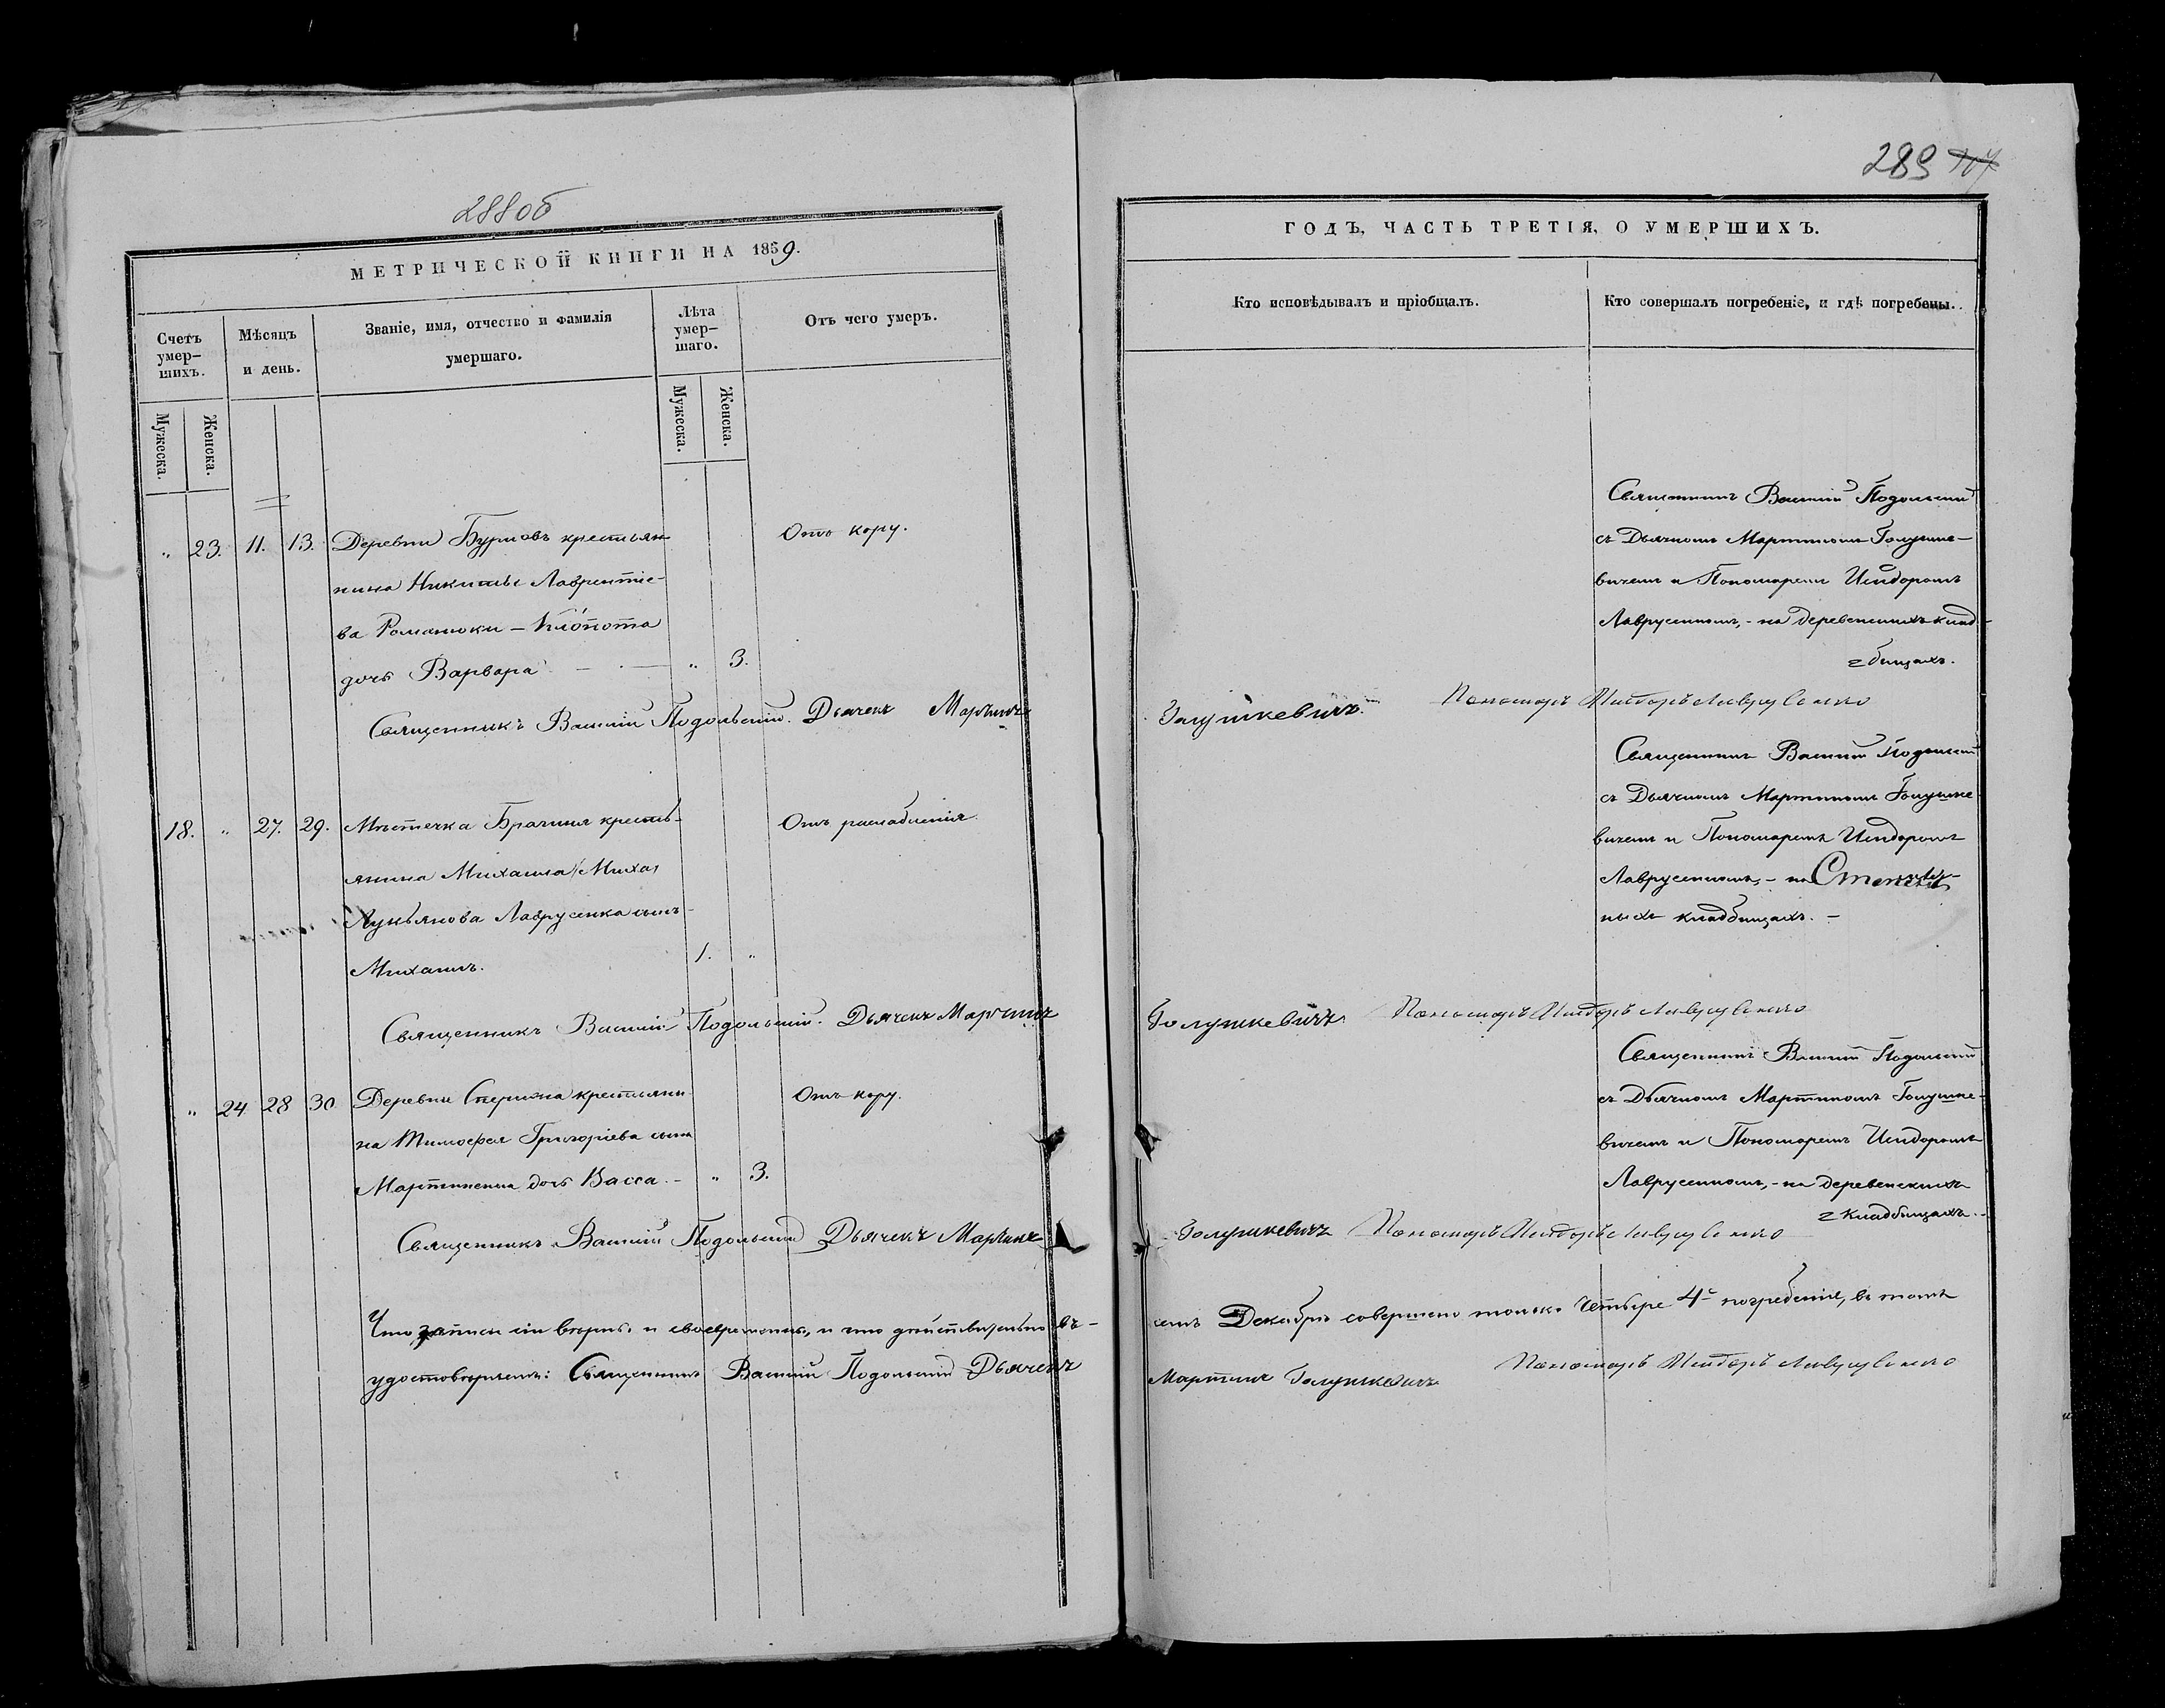 288об
МЕТРИЧЕСКОЙ КНИГИ НА 1859.
Счетъ умер-шихъ.
Мѣсяцъ и день.
Званіе, имя, отчество и фамилія умершаго.
Лѣта умер-шаго.
Отъ чего умеръ.
Мужеска.
Женска.
Мужеска.
Женска.
" 23. 11. 13. Деревни Бурловъ крестьян- Отъ кору.
нина Никиты Лаврентіе-
ва Романюки – Клопота
дочь Варвара " 3.
Священникъ Василій Подольскій. Дьячекъ Мартинъ
18. " 27. 29. Мѣстечка Брагиня кресть- Отъ разслабленія.
янина Михаила Михая
Лукьянова Лаврусенка сынъ
Михаилъ. 1. "
Священникъ Василій Подольскій. Дьячекъ Мартинъ
" 24 28 30 Деревни Стерижа крестьяни- Отъ кору.
на Тимофея Григорієва сына
Мартиненка дочь Васса. – " 3.
Священникъ Василій Подольскій Дьячекъ Мартинъ
Что записи сіи вѣрны и своевременны, и что дѣйствительно въ-
удостовѣряемъ: Священникъ Василій Подольскій Дьячекъ
289 117
ГОДЪ, ЧАСТЬ ТРЕТІЯ, О УМЕРШИХЪ.
Кто исповѣдывалъ и пріобщалъ.
Кто совершалъ погребеніе, и гдѣ погребены.
Священникъ Василій Подольскій
съ Дьячкомъ Мартиномъ Голушке-
вичемъ и Пономаремъ Исидоромъ
Лаврусенкомъ, – на деревенскихъ клад-
бищахъ.
Голушкевичъ. Пономарь Исидоръ Лаврусенко
Священникъ Василій Подольскій
съ Дьячкомъ Мартиномъ Голушке-
вичемъ и Пономаремъ Исидоромъ
Лаврусенкомъ, – на
ныхъ кладбищахъ. –
Голушкевичъ Пономарь Исидоръ Лаврусенко
Священникъ Василій Подольскій
съ Дьячкомъ Мартиномъ Голушке-
вичемъ и Пономаремъ Исидоромъ
Лаврусенкомъ, – на деревенскихъ
кладбищахъ.
Голушкевичъ Пономарь Исидоръ Лаврусенко
семъ Декабрѣ совершено только четыре 4ᵉ погребенія, въ томъ
Мартинъ Голушкевичъ Пономарь Исидоръ Лаврусенко